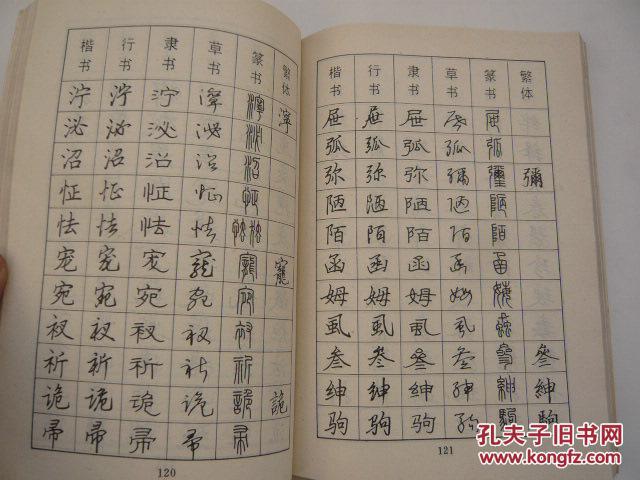 楷书 行书 隶书 草书 篆书 繁体
泞 泞 泞 泞 泞 濘
泌 泌 泌 泌 泌
沼 沼 沼 沼 沼
怔 怔 怔 怔 怔
怯 怯 怯 怯 怯
宠 宠 宠 宠 宠 寵
宛 宛 宛 宛 宛
衩 衩 衩 衩 衩
祈 祈 祈 祈 祈
诡 诡 诡 诡 诡 詭
帚 帚 帚 帚 帚
120
楷书 行书 隶书 草书 篆书 繁体
屉 屉 屉 屉 屉
弧 弧 弧 弧 弧
弥 弥 弥 弥 彌 彌
陋 陋 陋 陋 陋
陌 陌 陌 陌 陌
函 函 函 函 函
姆 姆 姆 姆 姆
虱 虱 虱 虱 虱
叁 叁 叁 叁 叁 叄
绅 绅 绅 绅 紳 紳
驹 驹 驹 驹 駒 駒
121
孔夫子旧书网
www.kongfz.com